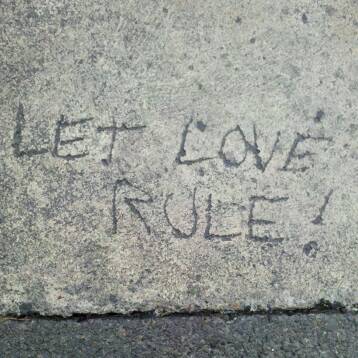 LET LOVE
RULE!